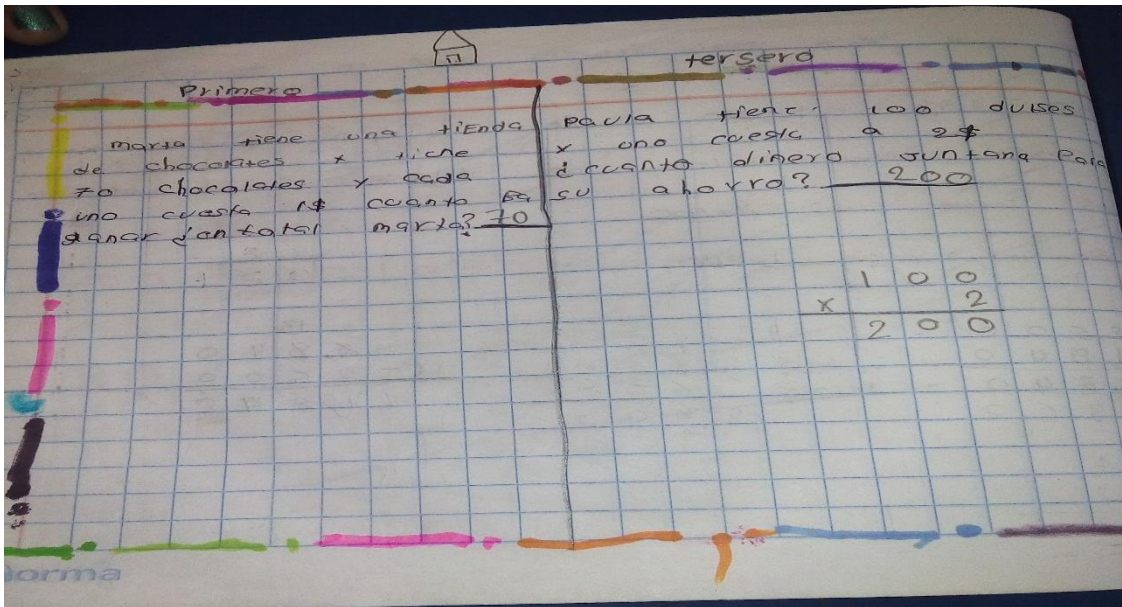 Primero
marta tiene una tiENda
de chocolates y tiene
70 chocolates y cada
uno cuesta 1$ cuanto
ganar en total marta? 70
tersero
Paula tiene 100 dulses
y uno cuesta a 2$
¿cuanto dinero Juntara Para
su ahorro? 200
100
x 2
200
norma